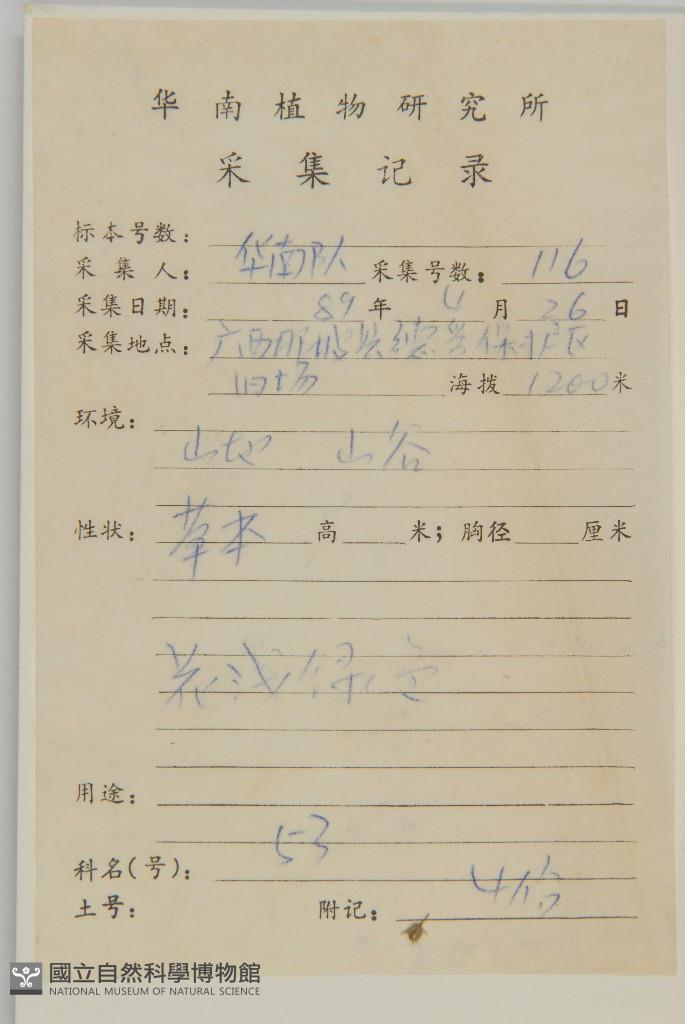 华南植物研究所
采集记录
标本号数:
采集人: 华南队 采集号数: 116
采集日期: 89年 4月 26日
采集地点: 广西那坡县德孚保护区
旧场 海拨 1200米
环境:
山地 山谷
性状: 草本 高 米; 胸径 厘米
花浅绿色
用途:
53
科名(号):
土号: 附记: 4份
國立自然科學博物館
NATIONAL MUSEUM OF NATURAL SCIENCE